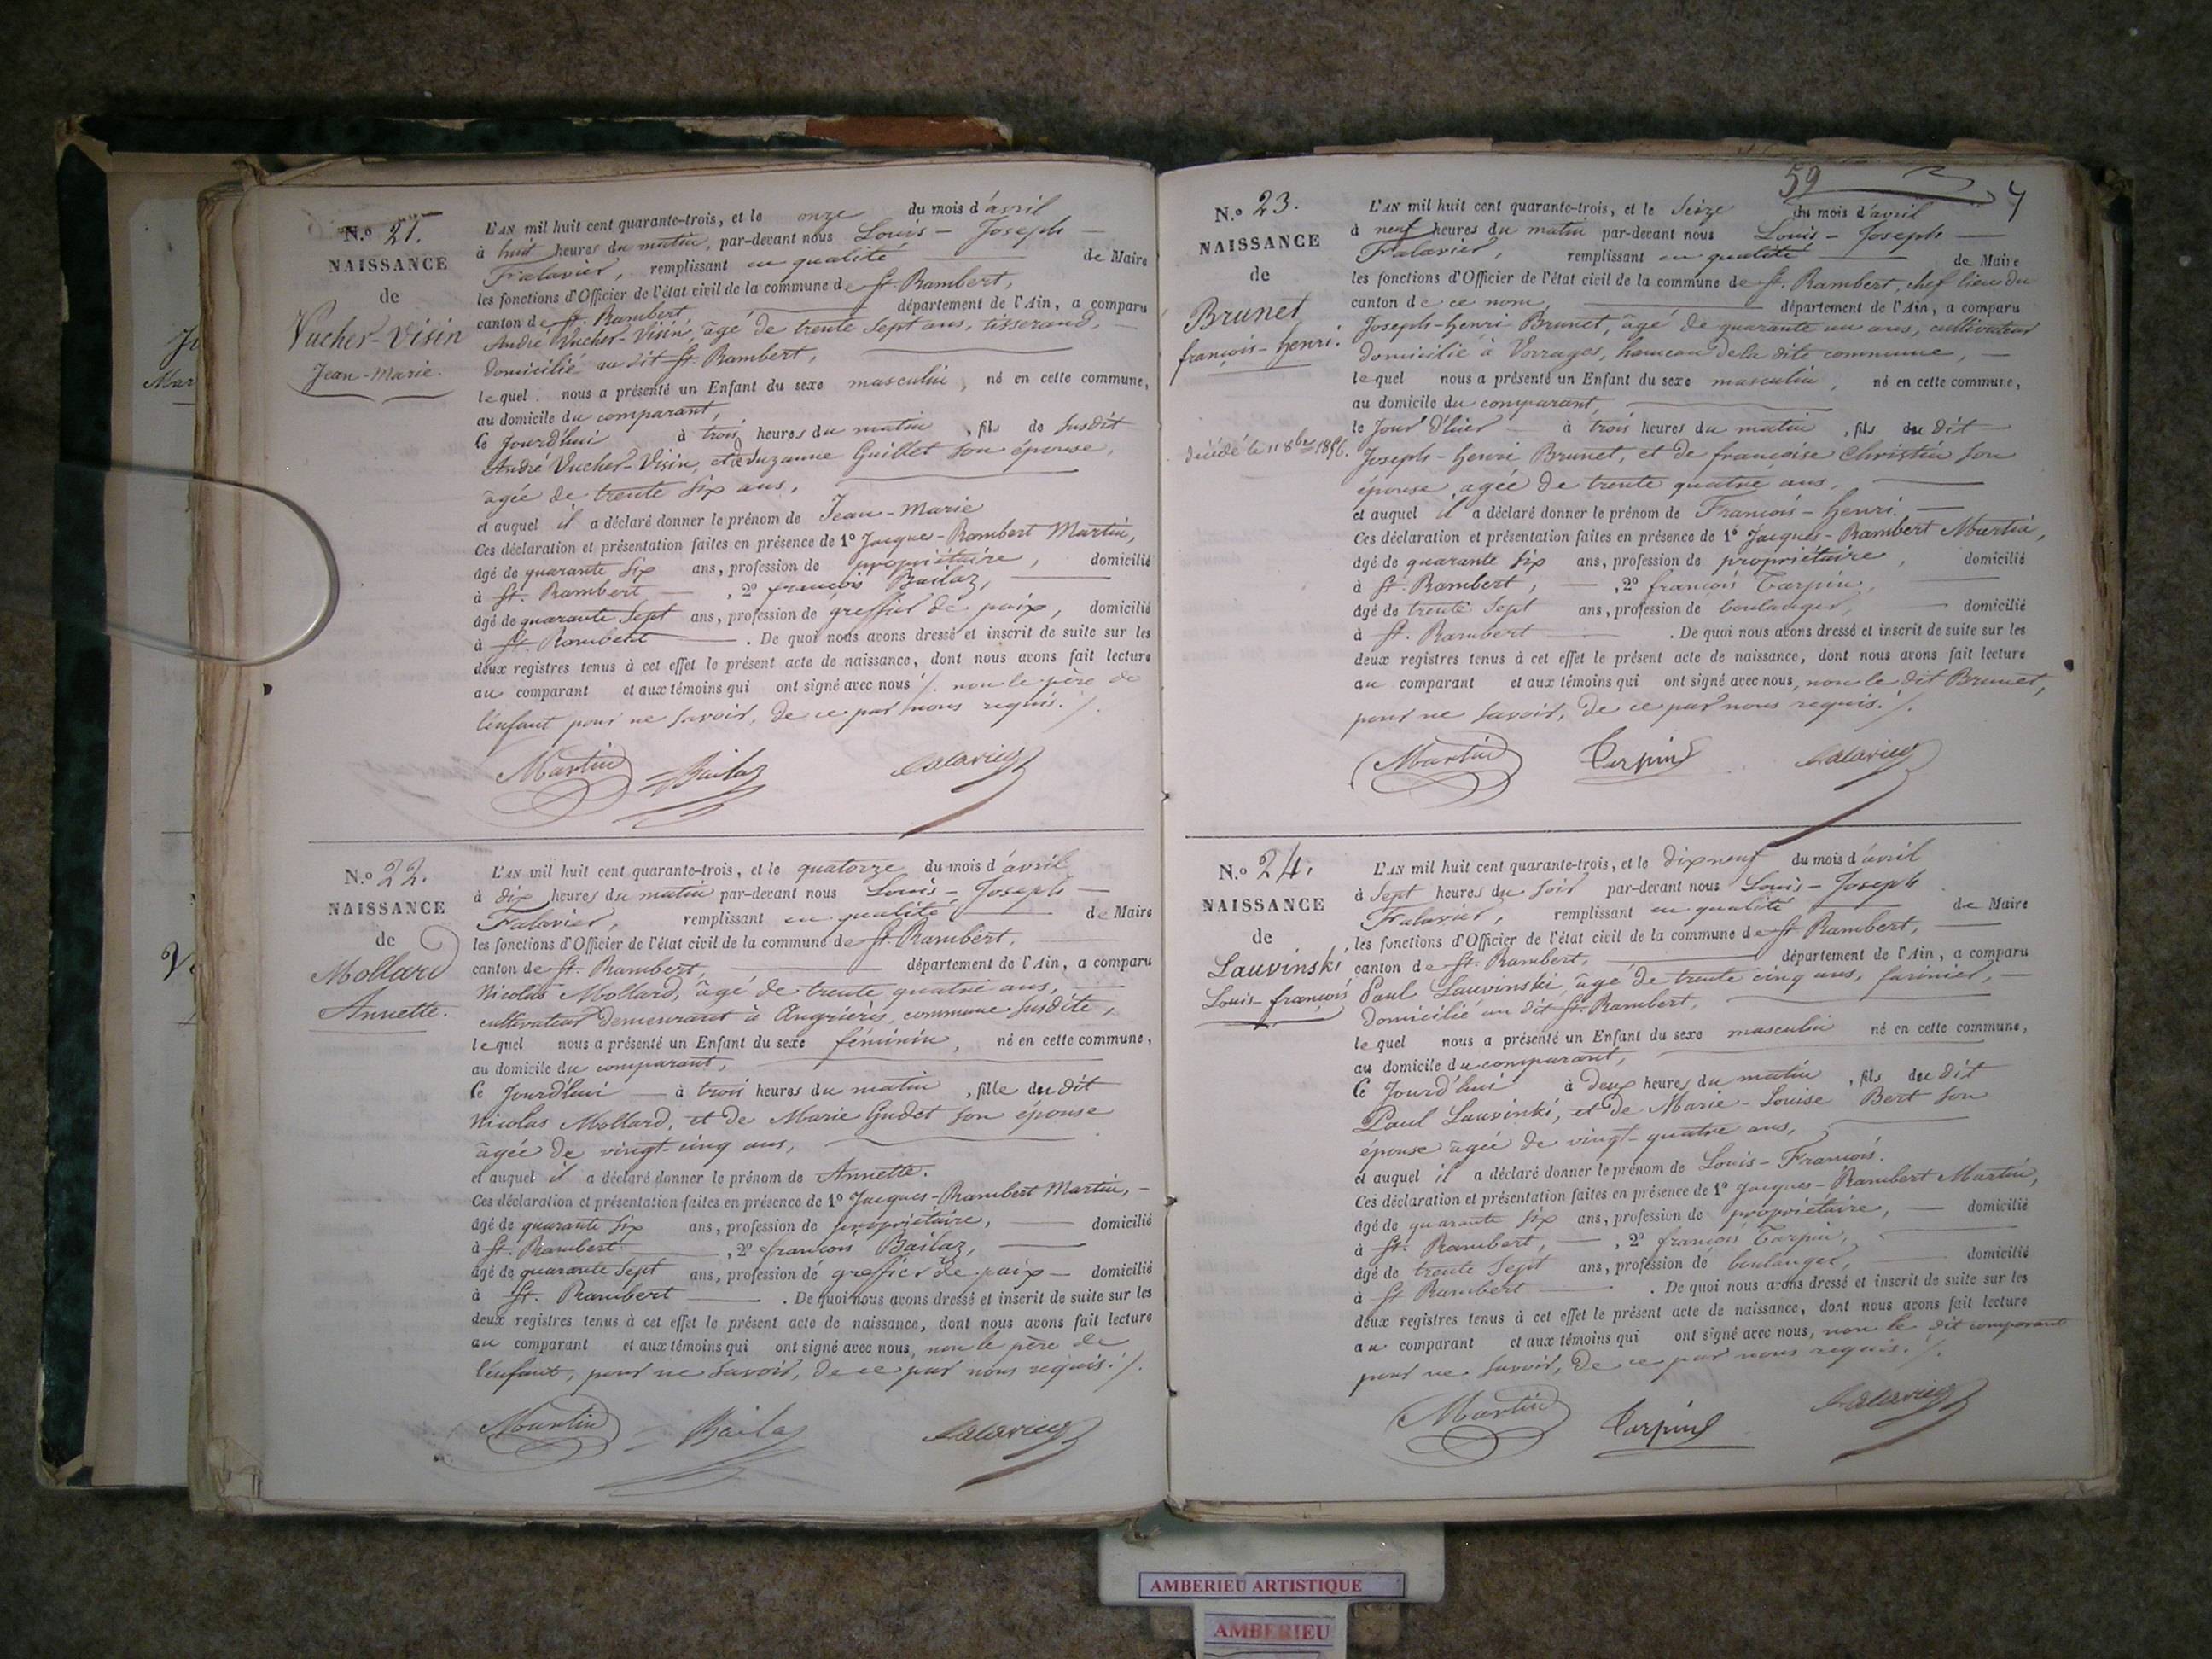 N.o 21.
NAISSANCE
de
Vucher-Visin
Jean-Marie.
L'AN mil huit cent quarante-trois, et le onze du mois d'avril
à huit heures du matin, par-devant nous Louis-Joseph
Falavier, remplissant en qualité de Maire
les fonctions d'Officier de l'état civil de la commune de St. Rambert,
canton de St. Rambert département de l'Ain, a comparu
André Vucher-Visin, âgé de trente sept ans, tisserand,
domicilié au dit St. Rambert,
lequel nous a présenté un Enfant du sexe masculin, né en cette commune,
au domicile du comparant,
Ce jourd'hui à trois heures du matin, fils de susdit
André Vucher-Visin, et de Suzanne Guillet son épouse,
âgée de trente six ans,
et auquel il a déclaré donner le prénom de Jean-Marie
Ces déclaration et présentation faites en présence de 1o Jacques-Rambert Martin,
âgé de quarante six ans, profession de propriétaire, domicilié
à St. Rambert, 2o françois Bailaz,
âgé de quarante sept ans, profession de greffier de paix, domicilié
à St. Rambert. De quoi nous avons dressé et inscrit de suite sur les
deux registres tenus à cet effet le présent acte de naissance, dont nous avons fait lecture
au comparant et aux témoins qui ont signé avec nous ./. non le père de
l'enfant pour ne savoir, de ce par nous requis./.
Martin Bailaz Falavier
N.o 22.
NAISSANCE
de
Mollard
Annette.
L'AN mil huit cent quarante-trois, et le quatorze du mois d'avril
à dix heures du matin par-devant nous Louis-Joseph
Falavier, remplissant en qualité de Maire
les fonctions d'Officier de l'état civil de la commune de St. Rambert,
canton de St. Rambert, département de l'Ain, a comparu
Nicolas Mollard, âgé de trente quatre ans,
cultivateur demeurant à Angrières, commune susdite,
lequel nous a présenté un Enfant du sexe féminin, né en cette commune,
au domicile du comparant,
Ce jourd'hui à trois heures du matin, fille du dit
Nicolas Mollard, et de Marie Gudet son épouse
âgée de vingt-cinq ans,
et auquel il a déclaré donner le prénom de Annette.
Ces déclaration et présentation faites en présence de 1o Jacques-Rambert Martin,
âgé de quarante six ans, profession de propriétaire, domicilié
à St. Rambert, 2o françois Bailaz,
âgé de quarante sept ans, profession de greffier de paix domicilié
à St. Rambert. De quoi nous avons dressé et inscrit de suite sur les
deux registres tenus à cet effet le présent acte de naissance, dont nous avons fait lecture
au comparant et aux témoins qui ont signé avec nous, non le père de
l'enfant, pour ne savoir, de ce par nous requis./.
Martin Bailaz Falavier
59
N.o 23.
NAISSANCE
de
Brunet
françois-henri.
décédé le 11 8bre 1856.
L'AN mil huit cent quarante-trois, et le seize du mois d'avril
à neuf heures du matin par-devant nous Louis-Joseph
Falavier, remplissant en qualité de Maire
les fonctions d'Officier de l'état civil de la commune de St. Rambert, chef lieu du
canton de ce nom, département de l'Ain, a comparu
Joseph-henri Brunet, âgé de quarante un ans, cultivateur
domicilié à Vorrages, hameau de la dite commune,
lequel nous a présenté un Enfant du sexe masculin, né en cette commune,
au domicile du comparant,
le jour d'hier à trois heures du matin, fils du dit
Joseph-henri Brunet, et de françoise Christin son
épouse, agée de trente quatre ans,
et auquel il a déclaré donner le prénom de François-henri.
Ces déclaration et présentation faites en présence de 1o Jacques-Rambert Martin,
âgé de quarante six ans, profession de propriétaire, domicilié
à St. Rambert, 2o françois Tarpin,
âgé de trente sept ans, profession de boulanger, domicilié
à St. Rambert. De quoi nous avons dressé et inscrit de suite sur les
deux registres tenus à cet effet le présent acte de naissance, dont nous avons fait lecture
au comparant et aux témoins qui ont signé avec nous, non le dit Brunet,
pour ne savoir, de ce par nous requis./.
Martin Tarpin Falavier
N.o 24.
NAISSANCE
de
Lauvinski
Louis-françois
L'AN mil huit cent quarante-trois, et le dix neuf du mois d'avril
à sept heures du soir par-devant nous Louis-Joseph
Falavier, remplissant en qualité de Maire
les fonctions d'Officier de l'état civil de la commune de St. Rambert,
canton de St. Rambert, département de l'Ain, a comparu
Paul Lauvinski, âgé de trente cinq ans, farinier,
domicilié au dit St. Rambert,
lequel nous a présenté un Enfant du sexe masculin né en cette commune,
au domicile du comparant,
Ce jourd'hui à deux heures du matin, fils du dit
Paul Lauvinki, et de Marie-Louise Bert son
épouse âgée de vingt-quatre ans,
et auquel il a déclaré donner le prénom de Louis-François.
Ces déclaration et présentation faites en présence de 1o Jacques-Rambert Martin,
âgé de quarante six ans, profession de propriétaire, domicilié
à St. Rambert, 2o françois Tarpin,
âgé de trente sept ans, profession de boulanger, domicilié
à St Rambert. De quoi nous avons dressé et inscrit de suite sur les
deux registres tenus à cet effet le présent acte de naissance, dont nous avons fait lecture
au comparant et aux témoins qui ont signé avec nous, non le dit comparant
pour ne savoir, de ce par nous requis./.
Martin Tarpin Falavier
AMBERIEU ARTISTIQUE
AMBERIEU